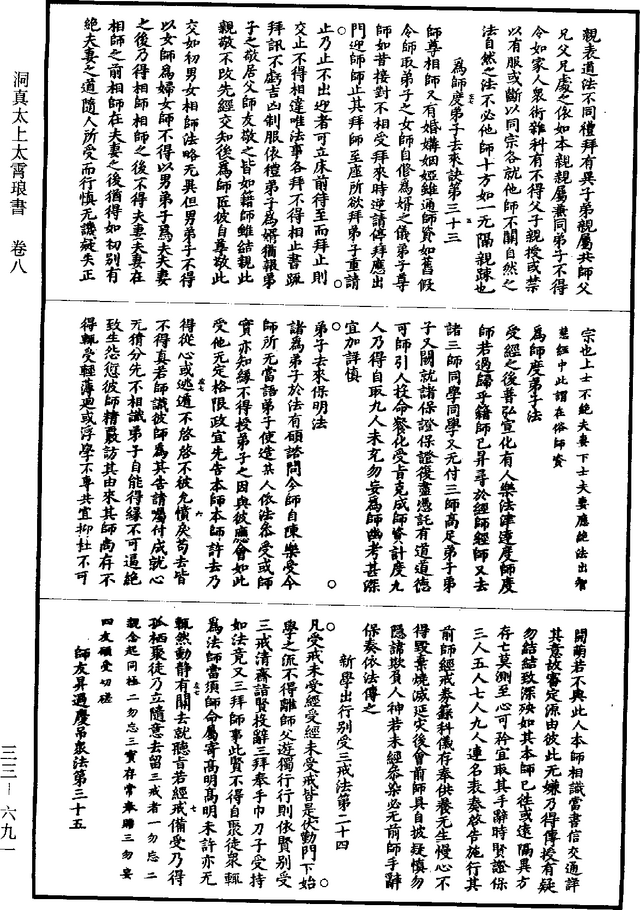 洞真太上太霄琅書　卷八
三三－六九一
親表道法不同禮拜有異子弟親屬共師父
兄父兄處之依如本親親屬兼同弟子不得
令如家人衆術雜利有不得父子親授或禁
以有服或斷以同宗各就他師不關自然之
法自然之法不必他師十方如一无隔親踈也
爲師度弟子去來訣第三十三
師尊相師又有婚媾姻婭雖通師資如舊假
令師取弟子之女師自修爲婿之儀弟子尊
師如昔接對不相受拜來時逆請停拜應出
門迎師師止其拜師至座所欲拜弟子重請
止乃止不出迎者可立床前待至而拜止則
交止不得相違唯法事各拜不得相止書䟽
拜訊不虧吉凶制服依禮弟子爲婿猶報弟
子之敬居父師友敬之皆如籍師雖結親此
親敬不改先經交知後爲師匠彼自尊敬此
交如初男女相師法略无異但男弟子不得
以女師爲婦女師不得以男弟子爲夫夫妻
之後乃得相師相師之後不得夫妻夫妻在
相師之前相師在夫妻之後猶得如初别有
絶夫妻之道隨人所受而行慎无譏疑失正
宗也上士不絶夫妻下士夫妻應絶法出智
慧經中此謂在俗師資
爲師度弟子法
受經之後善弘宣化有人樂法津達度師度
師若過歸乎籍師已昇尋於經師經師又去
諸三師同學同學又无付三師高足弟子弟
子又闕就諸保證保證復盡憑託有道道德
可師引人投命黎化受旨克成師資計度九
人乃得自取九人未充勿妄爲師幽考甚深
宜加詳慎
弟子去來保明法
諸爲弟子於法有碩諮問令師自陳樂受今
師所无當語弟子使造某人依法叅受或師
實亦知緣不得授弟子之因與彼應會如此
受他无定格限政宜先告本師本師許去乃
得從心或逃遁不啓啓不彼允憤戾苟去皆
不得真若師識彼師爲其告請囑付成就心
无猜分先不相識弟子自能得緣不可逼絶
致生怨愆彼師精嚴訪其由來其師尚存不
得輒受輕薄迴或浮學不專共宜抑杜不可
開萌若不與此人本師相識當書信交通詳
其意故審定源由彼此无嫌乃得傳授有疑
勿結結致深殃如其本師已往或遠隔異方
存亡莫測至心可矜宜取其手辭時賢證保
三人五人七人九人連名表奏啓告施行其
前師經戒券籙科儀存奉供養无生慢心不
得毀棄燒滅延灾後會前師具自披疑慎勿
隱諱欺負人神若未經叅染必无前師手辭
保奏依法傳之
新學出行别受三戒法第二十四
凡受戒未受經受經未受戒皆是伏勤門下始
學之流不得離師父遊獨行行則依賢别受
三戒清齋詣賢投辭三拜奉手巾刀子受持
如法竟又三拜師事此賢不得自聚徒衆輒
爲法師當須師命屬寄高明高明未許亦无
輒然動靜有關去就聽旨若經戒備受乃得
孤栖聚徒乃立隨意去留三戒者一勿忘二
親念起同極二勿忘三寳存常奉購三勿妄
四友碩受切磋
師友昇過慶吊衆法第三十五